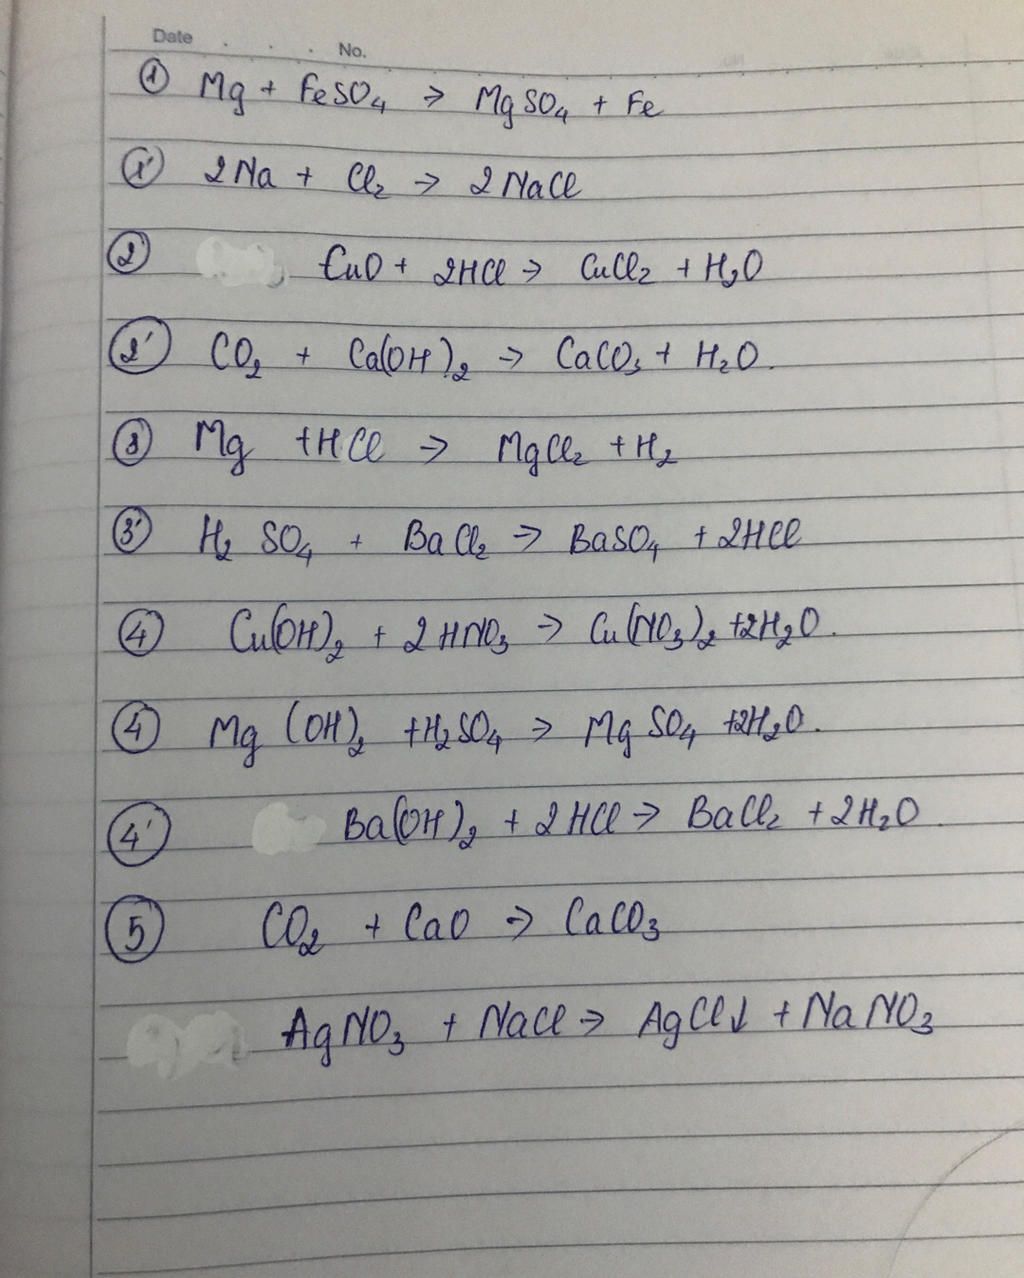 Date . . . No.
① Mg + FeSO₄ → MgSO₄ + Fe
①' 2Na + Cl₂ → 2NaCl
② CuO + 2HCl → CuCl₂ + H₂O
②' CO₂ + Ca(OH)₂ → CaCO₃ + H₂O.
③ Mg + HCl → MgCl₂ + H₂
③' H₂SO₄ + BaCl₂ → BaSO₄ + 2HCl
④ Cu(OH)₂ + 2HNO₃ → Cu(NO₃)₂ + 2H₂O.
④ Mg(OH)₂ + H₂SO₄ → MgSO₄ + 2H₂O.
④' Ba(OH)₂ + 2HCl → BaCl₂ + 2H₂O.
⑤ CO₂ + CaO → CaCO₃
AgNO₃ + NaCl → AgCl↓ + NaNO₃